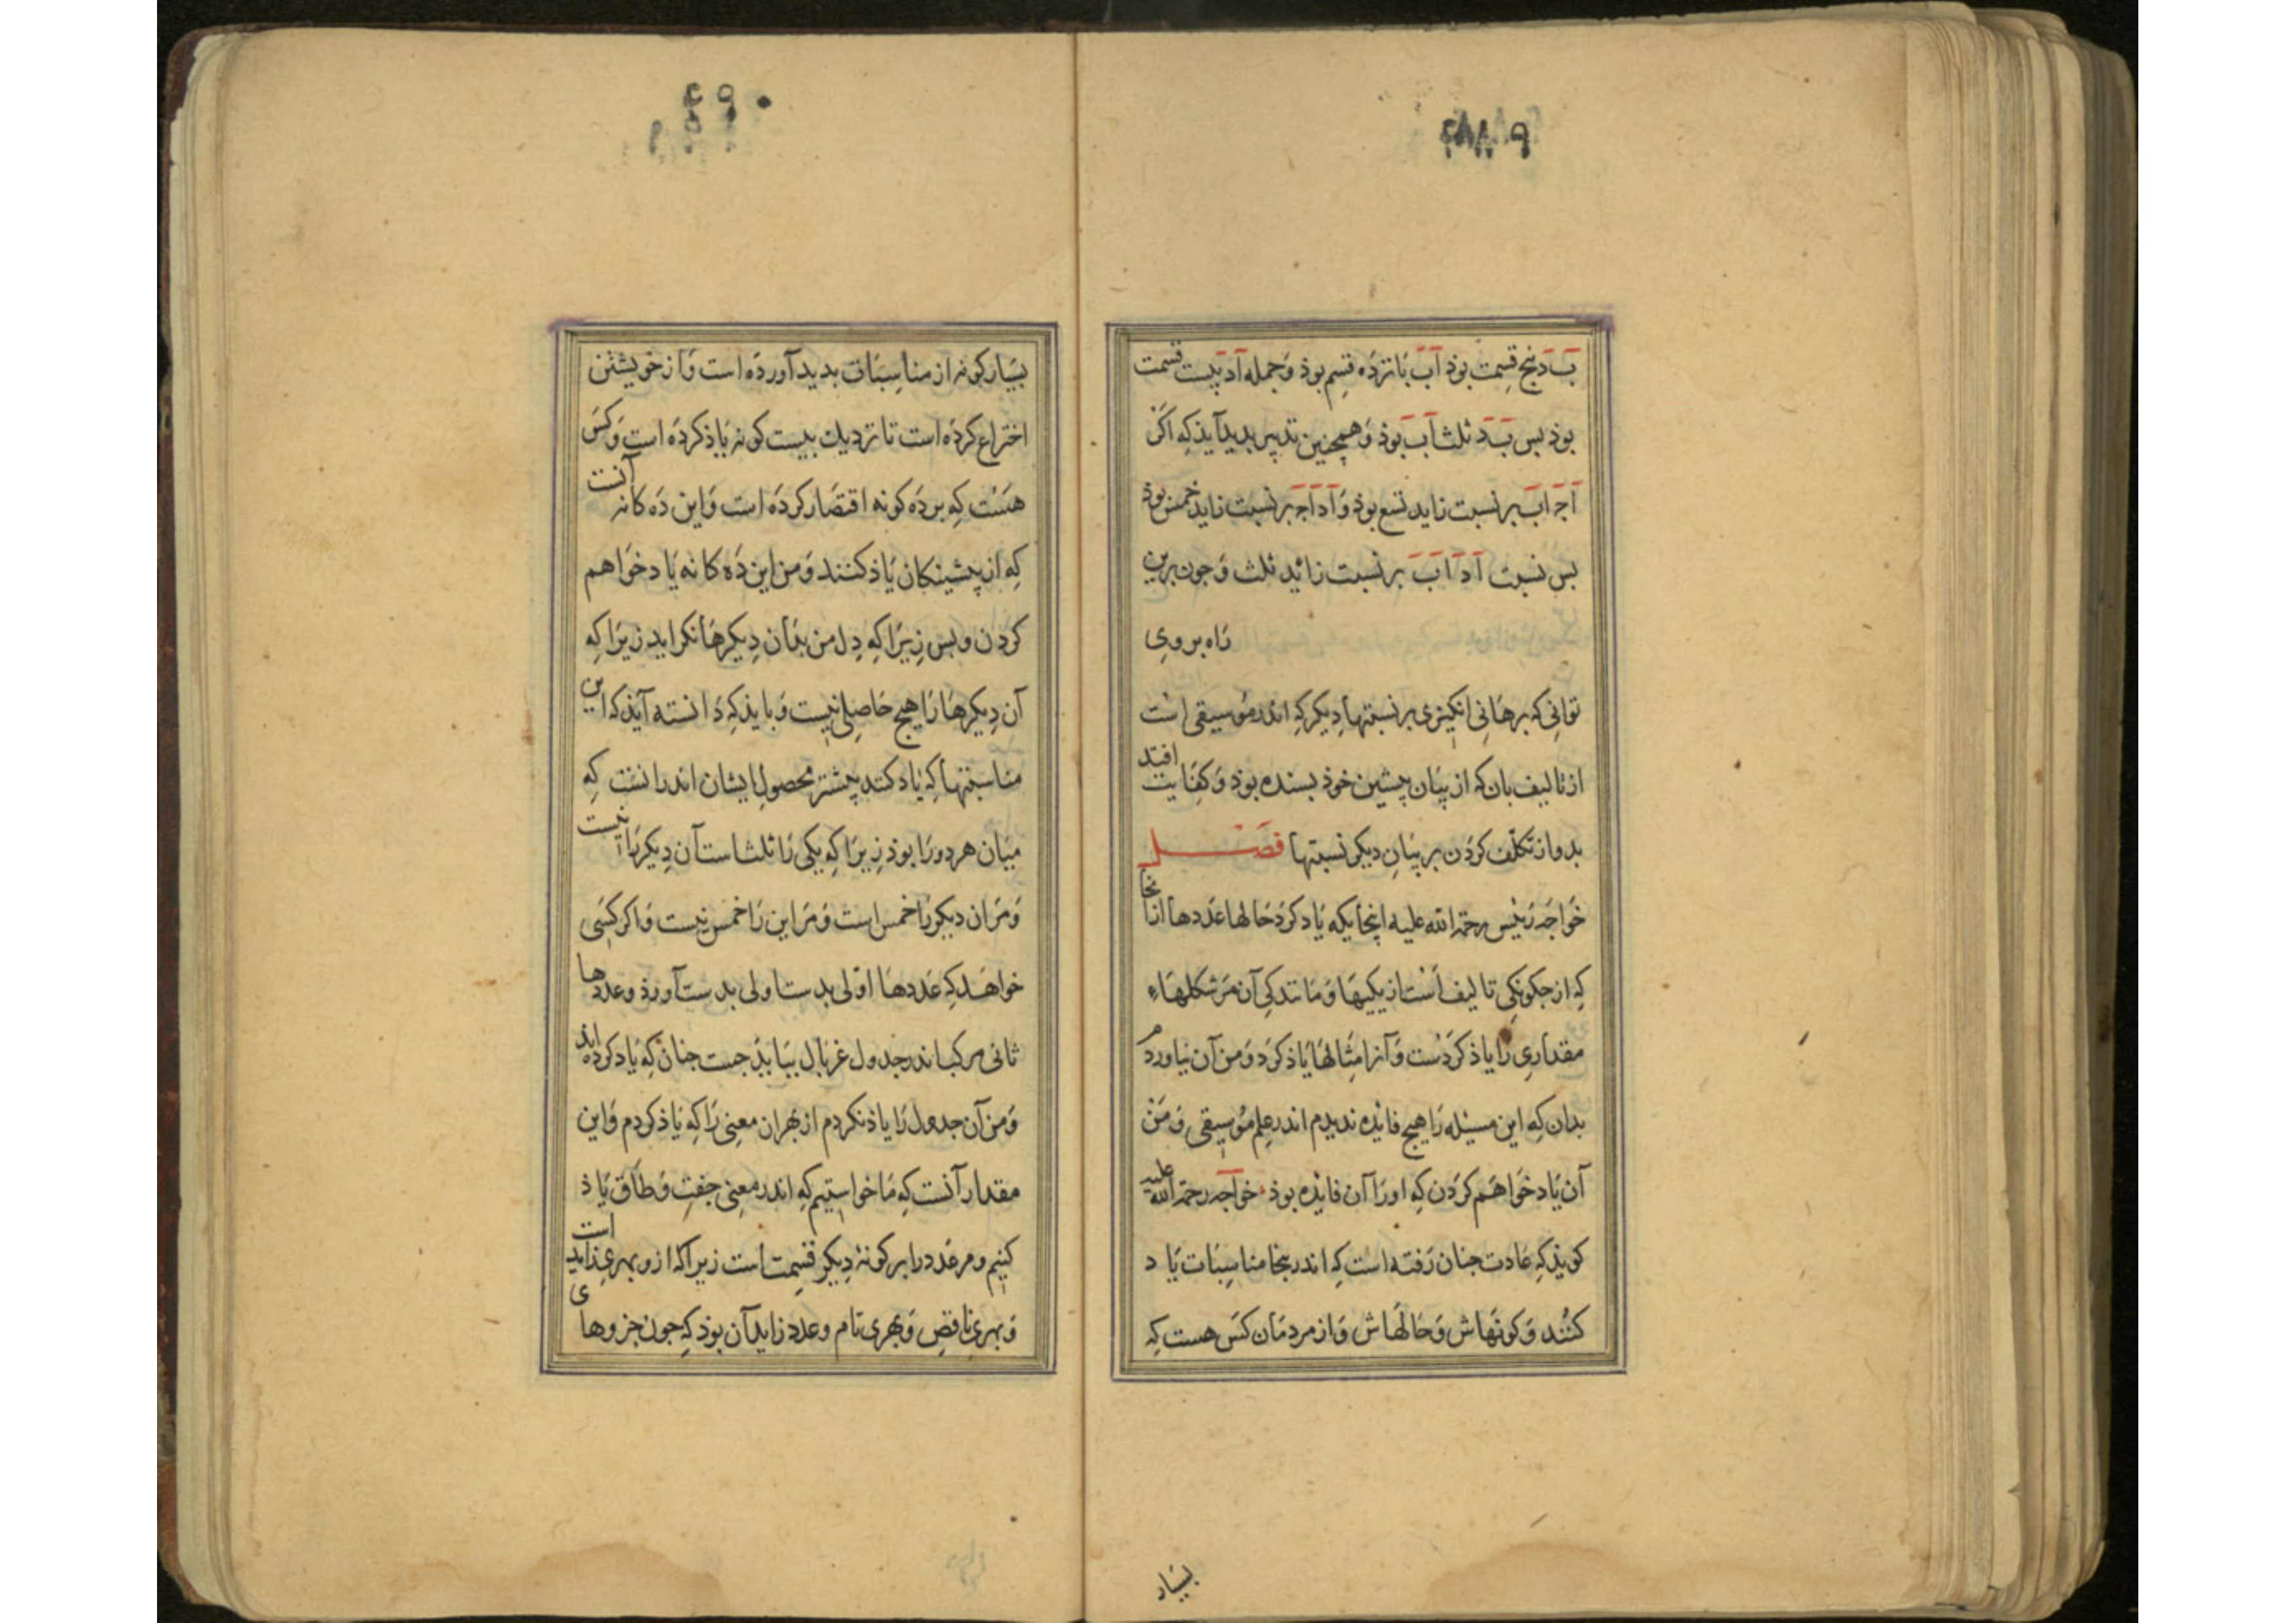 ب د پنج قسمت بوذ آب پانزده قسم بوذ و جمله آد بیست قسمت
بوذ بس ب د ثلث آب بوذ و همچنین تدبیر بدید آیذ که اکر
آج اب بر نسبت زاید تسع بوذ و آد اج بر نسبت زاید خمس بوذ
بس نسبت آد اب بر نسبت زائد ثلث و جون برین
راه بروی
توانی که برهانی انکیزی بر نسبتها دیکر که اندر موسیقی است
از تالیف بان که از بیان پیشین خوذ بسنده بوذ و کفایت افتد
بدو از تکلف کردن بر بیان دیکر نسبتها فصل
خواجه رئیس رحمة الله علیه اینجایکه یاد کرد حالها عددها از انجا
که از جکونکی تالیف است از یکیها و مانندکی آن مر شکلهاء
مقداری را یاذ کردست و آنرا مثالها یاذ کرد و من آن نیاوردم
بدان که این مسئله را هیج فائده ندیدم اندر علم موسیقی و من
آن یاد خواهم کردن که او را آن فایذه بوذ خواجه رحمة الله علیه
کویذ که عادت جنان رفته است که اندرینجا مناسبات یاد
کنند و کونهاش و حالهاش و از مردمان کس هست که
بسیار
۴۹۰
بسیار کونه از مناسبات بدید آورده است و از خویشتن
اختراع کرده است تا نزدیك بیست کونه یاذ کرده است و کس
هست که بر ده کونه اقتصار کرده است و این ده کانه آنست
که از پیشینکان یاذ کنند و من این ده کانه یاد خواهم
کردن و بس زیرا که دل من بدان دیکرها نکراید زیرا که
آن دیکرها را هیج حاصلی نیست و بایذ که دانسته آیذ که این
مناسبتها که یاد کند پیشتر محصول ایشان اندر انست که
میان هر دو را بوذ زیرا که یکی را ثلث است آن دیکر را نیست
و مر ان دیکر را خمس است و مر این را خمس نیست و اکر کسی
خواهد که عددها اولی بدست اولی بدست آورذ و عددها
ثانی مرکب اندر جدول غربال بباید جست جنان که یاد کرده اند
و من آن جدول را یاذ نکردم از بهر ان معنی را که یاذ کردم و این
مقدار آنست که ما خواستیم که اندر معنی جفت و طاق یاذ
کنیم و مر عدد را بر کونه دیکر قسمت است زیرا که ازو بهری زاید است
و بهری ناقص و بهری تام و عدد زاید آن بوذ که جون جزوهای